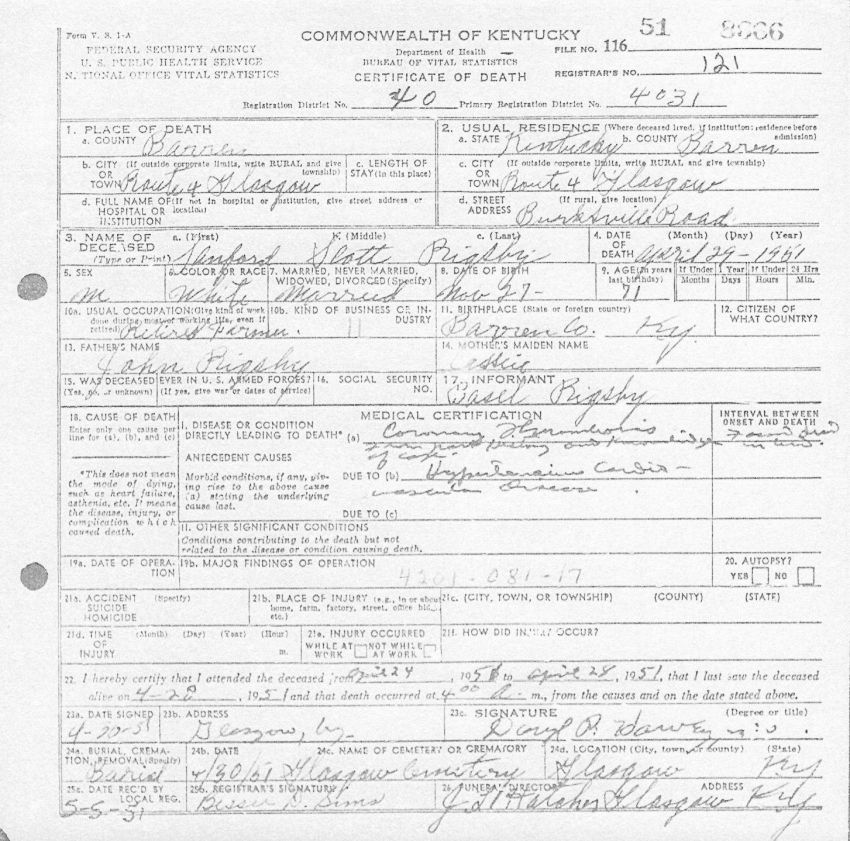 Form V. S. 1-A
FEDERAL SECURITY AGENCY
U. S. PUBLIC HEALTH SERVICE
N. TIONAL OFFICE VITAL STATISTICS
COMMONWEALTH OF KENTUCKY
Department of Health
BUREAU OF VITAL STATISTICS
CERTIFICATE OF DEATH
FILE NO. 116 51 8666
REGISTRAR'S NO. 121
Registration District No. 40 Primary Registration District No. 4031
1. PLACE OF DEATH
a. COUNTY Barren
b. CITY (If outside corporate limits, write RURAL and give township)
OR TOWN Route 4 Glasgow
c. LENGTH OF STAY (in this place)
d. FULL NAME OF (If not in hospital or institution, give street address or location)
HOSPITAL OR INSTITUTION
2. USUAL RESIDENCE (Where deceased lived. If institution: residence before admission)
a. STATE Kentucky b. COUNTY Barren
c. CITY (If outside corporate limits, write RURAL and give township)
OR TOWN Route 4 Glasgow
d. STREET (If rural, give location)
ADDRESS Burkesville Road
3. NAME OF DECEASED (Type or Print)
a. (First) b. (Middle) c. (Last)
Sanford Scott Rigsby
4. DATE OF DEATH (Month) (Day) (Year)
April 29-1951
5. SEX
M
6. COLOR OR RACE
White
7. MARRIED, NEVER MARRIED, WIDOWED, DIVORCED (Specify)
Married
8. DATE OF BIRTH
Nov 27-
9. AGE (In years last birthday)
71
If Under 1 Year Months Days
If Under 24 Hrs Hours Min.
10a. USUAL OCCUPATION (Give kind of work done during most of working life, even if retired)
Retired Farmer.
10b. KIND OF BUSINESS OR INDUSTRY
11
11. BIRTHPLACE (State or foreign country)
Barren Co. Ky.
12. CITIZEN OF WHAT COUNTRY?
13. FATHER'S NAME
John Rigsby
14. MOTHER'S MAIDEN NAME
Cassie
15. WAS DECEASED EVER IN U. S. ARMED FORCES?
(Yes, no, or unknown) (If yes, give war or dates of service)
16. SOCIAL SECURITY NO.
17. INFORMANT
Basel Rigsby
18. CAUSE OF DEATH
Enter only one cause per line for (a), (b), and (c)
*This does not mean the mode of dying, such as heart failure, asthenia, etc. It means the disease, injury, or complication which caused death.
MEDICAL CERTIFICATION
INTERVAL BETWEEN ONSET AND DEATH
I. DISEASE OR CONDITION DIRECTLY LEADING TO DEATH* (a) Coronary Thrombosis
from past history and knowledge of case.
Found dead in bed
ANTECEDENT CAUSES
Morbid conditions, if any, giving rise to the above cause (a) stating the underlying cause last.
DUE TO (b) Hypertensive Cardio-vascular Disease.
DUE TO (c)
II. OTHER SIGNIFICANT CONDITIONS
Conditions contributing to the death but not related to the disease or condition causing death.
19a. DATE OF OPERATION
19b. MAJOR FINDINGS OF OPERATION
4201-081-17
20. AUTOPSY?
YES NO
21a. ACCIDENT SUICIDE HOMICIDE (Specify)
21b. PLACE OF INJURY (e.g., in or about home, farm, factory, street, office bldg., etc.)
21c. (CITY, TOWN, OR TOWNSHIP) (COUNTY) (STATE)
21d. TIME OF INJURY (Month) (Day) (Year) (Hour) m.
21e. INJURY OCCURRED
WHILE AT WORK NOT WHILE AT WORK
21f. HOW DID INJURY OCCUR?
22. I hereby certify that I attended the deceased from April 24, 1951 to April 28, 1951, that I last saw the deceased
alive on 4-28, 1951 and that death occurred at 4 00 A. m., from the causes and on the date stated above.
23a. DATE SIGNED
4-30-51
23b. ADDRESS
Glasgow, Ky
23c. SIGNATURE (Degree or title)
Daryl P. Harvey M.D.
24a. BURIAL, CREMATION, REMOVAL (Specify)
Burial
24b. DATE
4/30/51
24c. NAME OF CEMETERY OR CREMATORY
Glasgow Cemetery
24d. LOCATION (City, town, or county) (State)
Glasgow Ky
25a. DATE REC'D BY LOCAL REG.
5-5-51
25b. REGISTRAR'S SIGNATURE
Bessie D. Sims
26. FUNERAL DIRECTOR ADDRESS
Hatcher Glasgow Ky